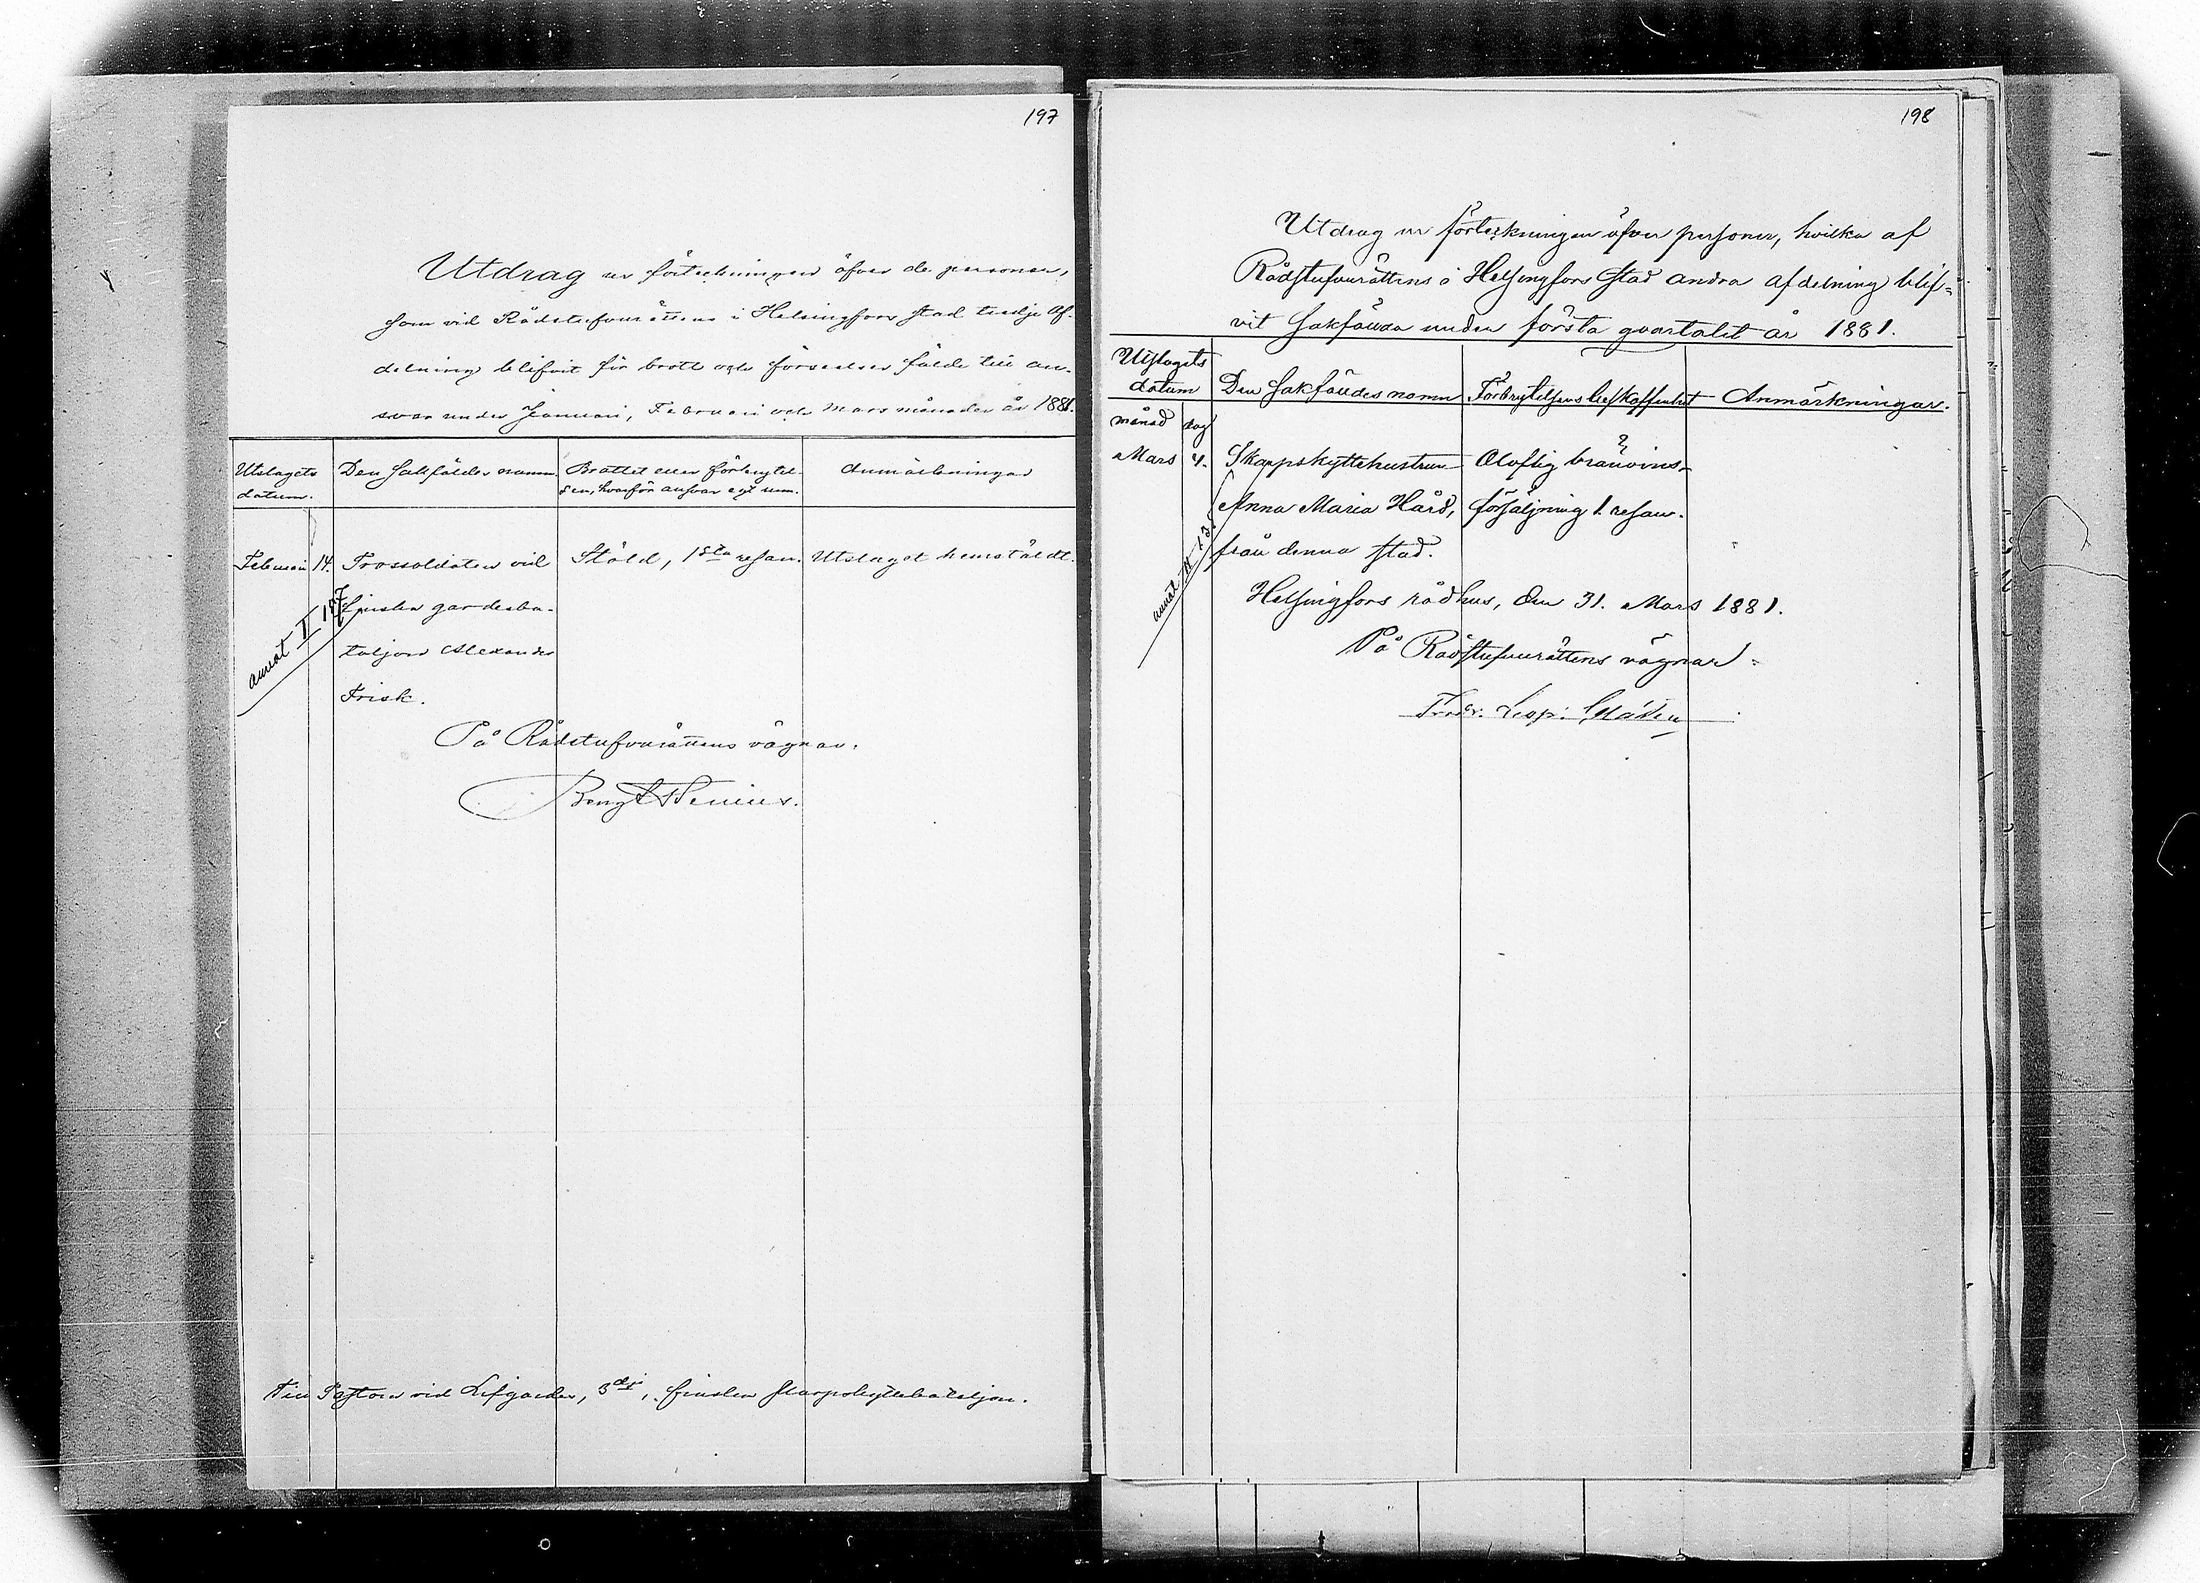 197
Utdrag ur förteckningen öfver de personer,
som vid Rådstufvurättens i Helsingfors stad tredje Af-
delning blifvit för brott och förseelser fälde till an-
svar under Januari, Februari och Mars månader år 1881.
Utslagets datum.
Den sakfäldes namn.
Brottet eller förbrytel-
sen, hvarför ansvar egt rum.
Anmärkningar
Februari 14. Trossoldaten vid Stöld, 1sta resan. Utslaget hemstäldt.
Finska gardesba-
taljon Alexander
Frisk.
annot II 197
På Rådstufvurättens vägnar:
Bengt
Till Pastorn vid Lifgardes, 3dje, finska skarpskyttebataljon.
198
Utdrag ur förteckningen öfver personer, hvilka af
Rådstufvurättens i Helsingfors stad andra afdelning blif-
vit sakfällda under första qvartalet år 1881.
Utslagets
datum
Den sakfälldes namn
Förbrytelsens beskaffenhet
Anmärkningar.
månad dag
Mars 4. Skarpskyttehustrun Olaflig bränvins-
Anna Maria Hård, försäljning 1. resan.
från denna stad.
annot II
Helsingfors rådhus, den 31. Mars 1881.
På Rådstufvurättens vägnar:
Fredr. Leop.